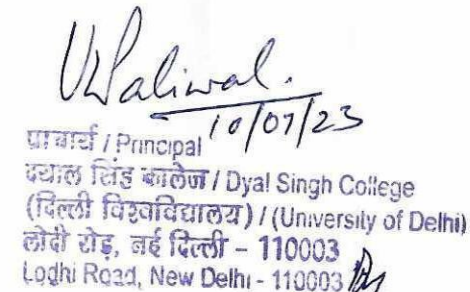 VKPaliwal.
10/07/23
प्राचार्य / Principal
दयाल सिंह कॉलेज / Dyal Singh College
(दिल्ली विश्वविद्यालय) / (University of Delhi)
लोदी रोड़, नई दिल्ली - 110003
Lodhi Road, New Delhi - 110003